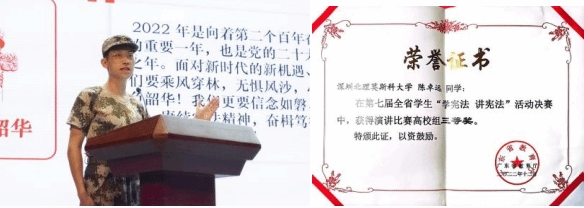 2022 年是向着第二个百年
的重要一年，也是党的二十
之年。面对新时代的新机遇、
们要乘风穿林，无惧风沙，
韶华！我们更要信念如磐
法精神，奋楫笃
韶华
荣誉证书
深圳北理莫斯科大学 陈卓远 同学：
在第七届全省学生“学宪法 讲宪法”活动决赛
中，获得演讲比赛高校组三等奖。
特颁此证，以资鼓励。
省教育
二〇二二年十